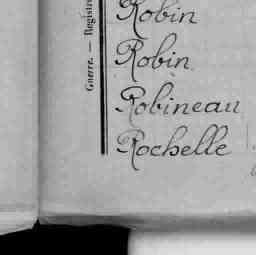 Guerre. — Registre
Robin
Robin
Robineau
Rochelle